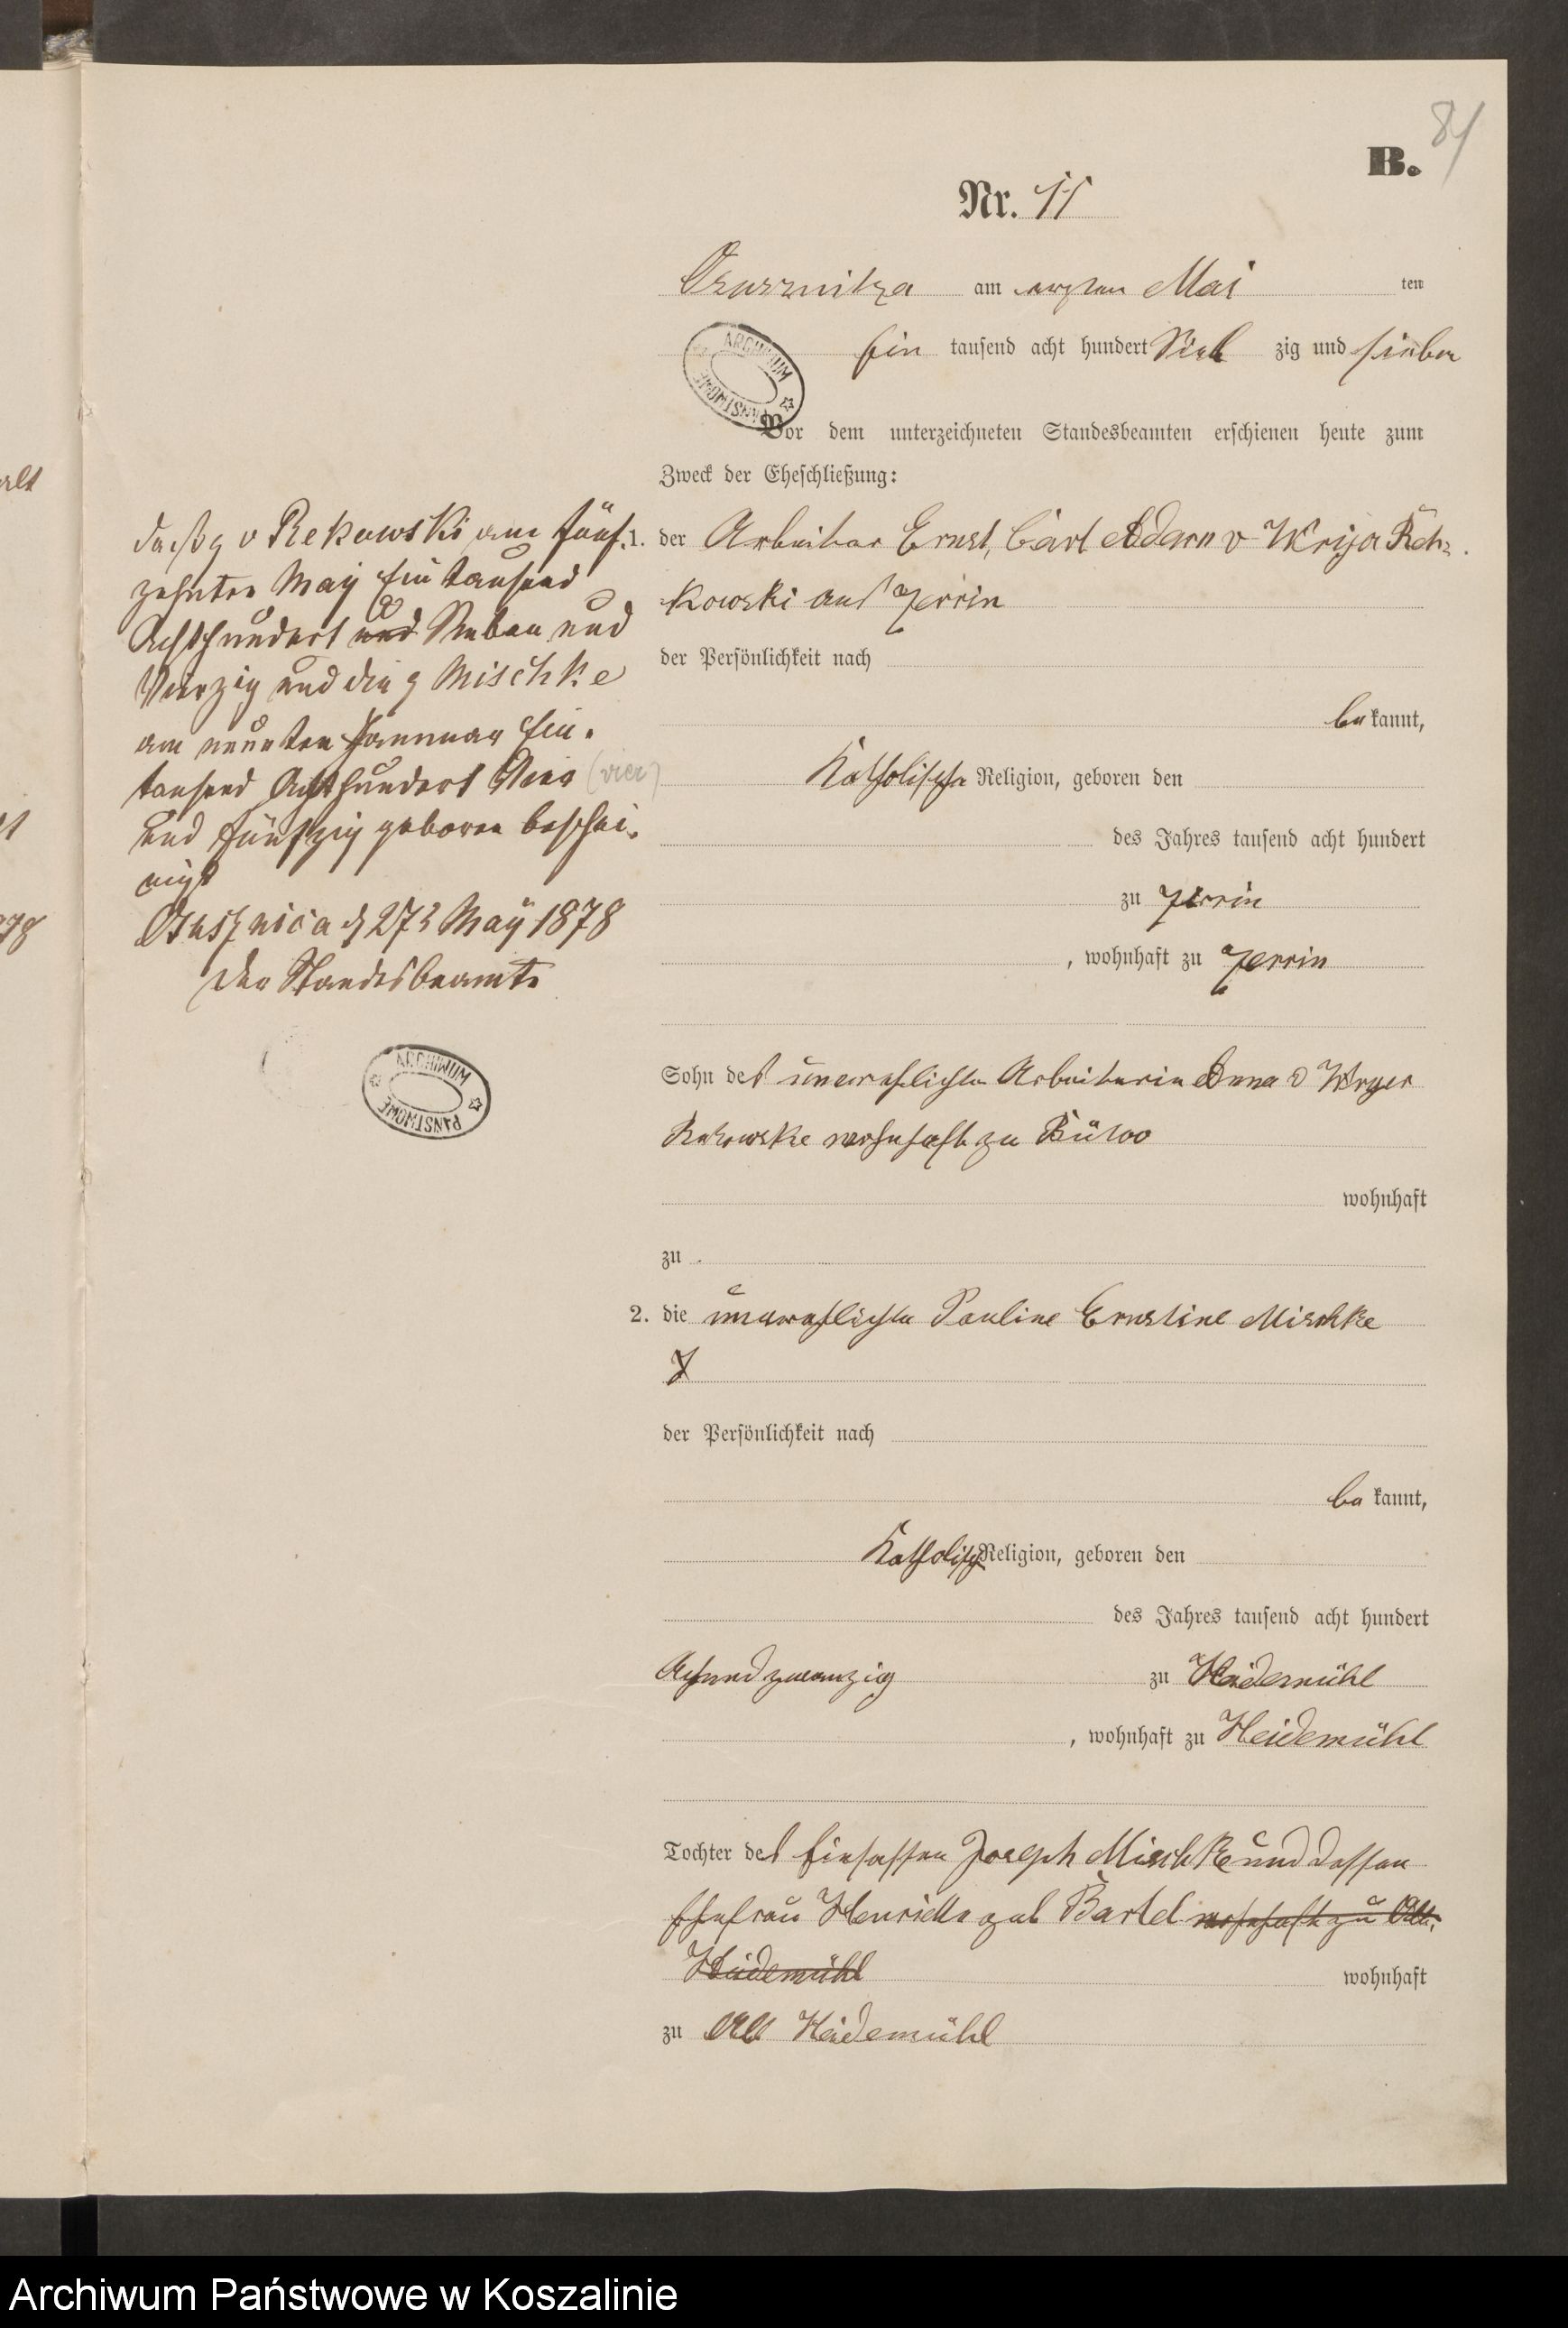 84
B.
Nr. 11
Czarnitza am ersten Mai ten
Ein tausend acht hundert Sieb zig und sieben
ARCHIWUM PAŃSTWOWE
Vor dem unterzeichneten Standesbeamten erschienen heute zum
Zweck der Eheschließung:
1. der Arbeiter Ernst, Carl Adam v Rek-
kowski aus Zerrin
der Persönlichkeit nach
be kannt,
Katholischer Religion, geboren den
des Jahres tausend acht hundert
zu Zerrin
, wohnhaft zu Zerrin
Sohn des unverehlichte Arbeiterin Anna v
wohnhaft zu Bütow
wohnhaft
zu
2. die unverehlichte Pauline Ernstine Mischke
der Persönlichkeit nach
be kannt,
Katholisch Religion, geboren den
des Jahres tausend acht hundert
zu Heidemühl
, wohnhaft zu Heidemühl
Tochter des Einsassen Joseph Mischke und dessen
Ehefrau Henriette geb Bartel wohnhaft zu Alt.
Heidemühl wohnhaft
zu Alt Heidemühl
daß v Rekowski am fünf-
zehnten May Ein tausend
Achthundert und Sieben und
Vierzig und die Mischke
am neunten Januar Ein-
tausend Achthundert Vier (vier)
und fünfzig geboren beschei-
nigt
d 27 May 1878
Der Standesbeamte
ARCHIWUM PAŃSTWOWE
Archiwum Państwowe w Koszalinie